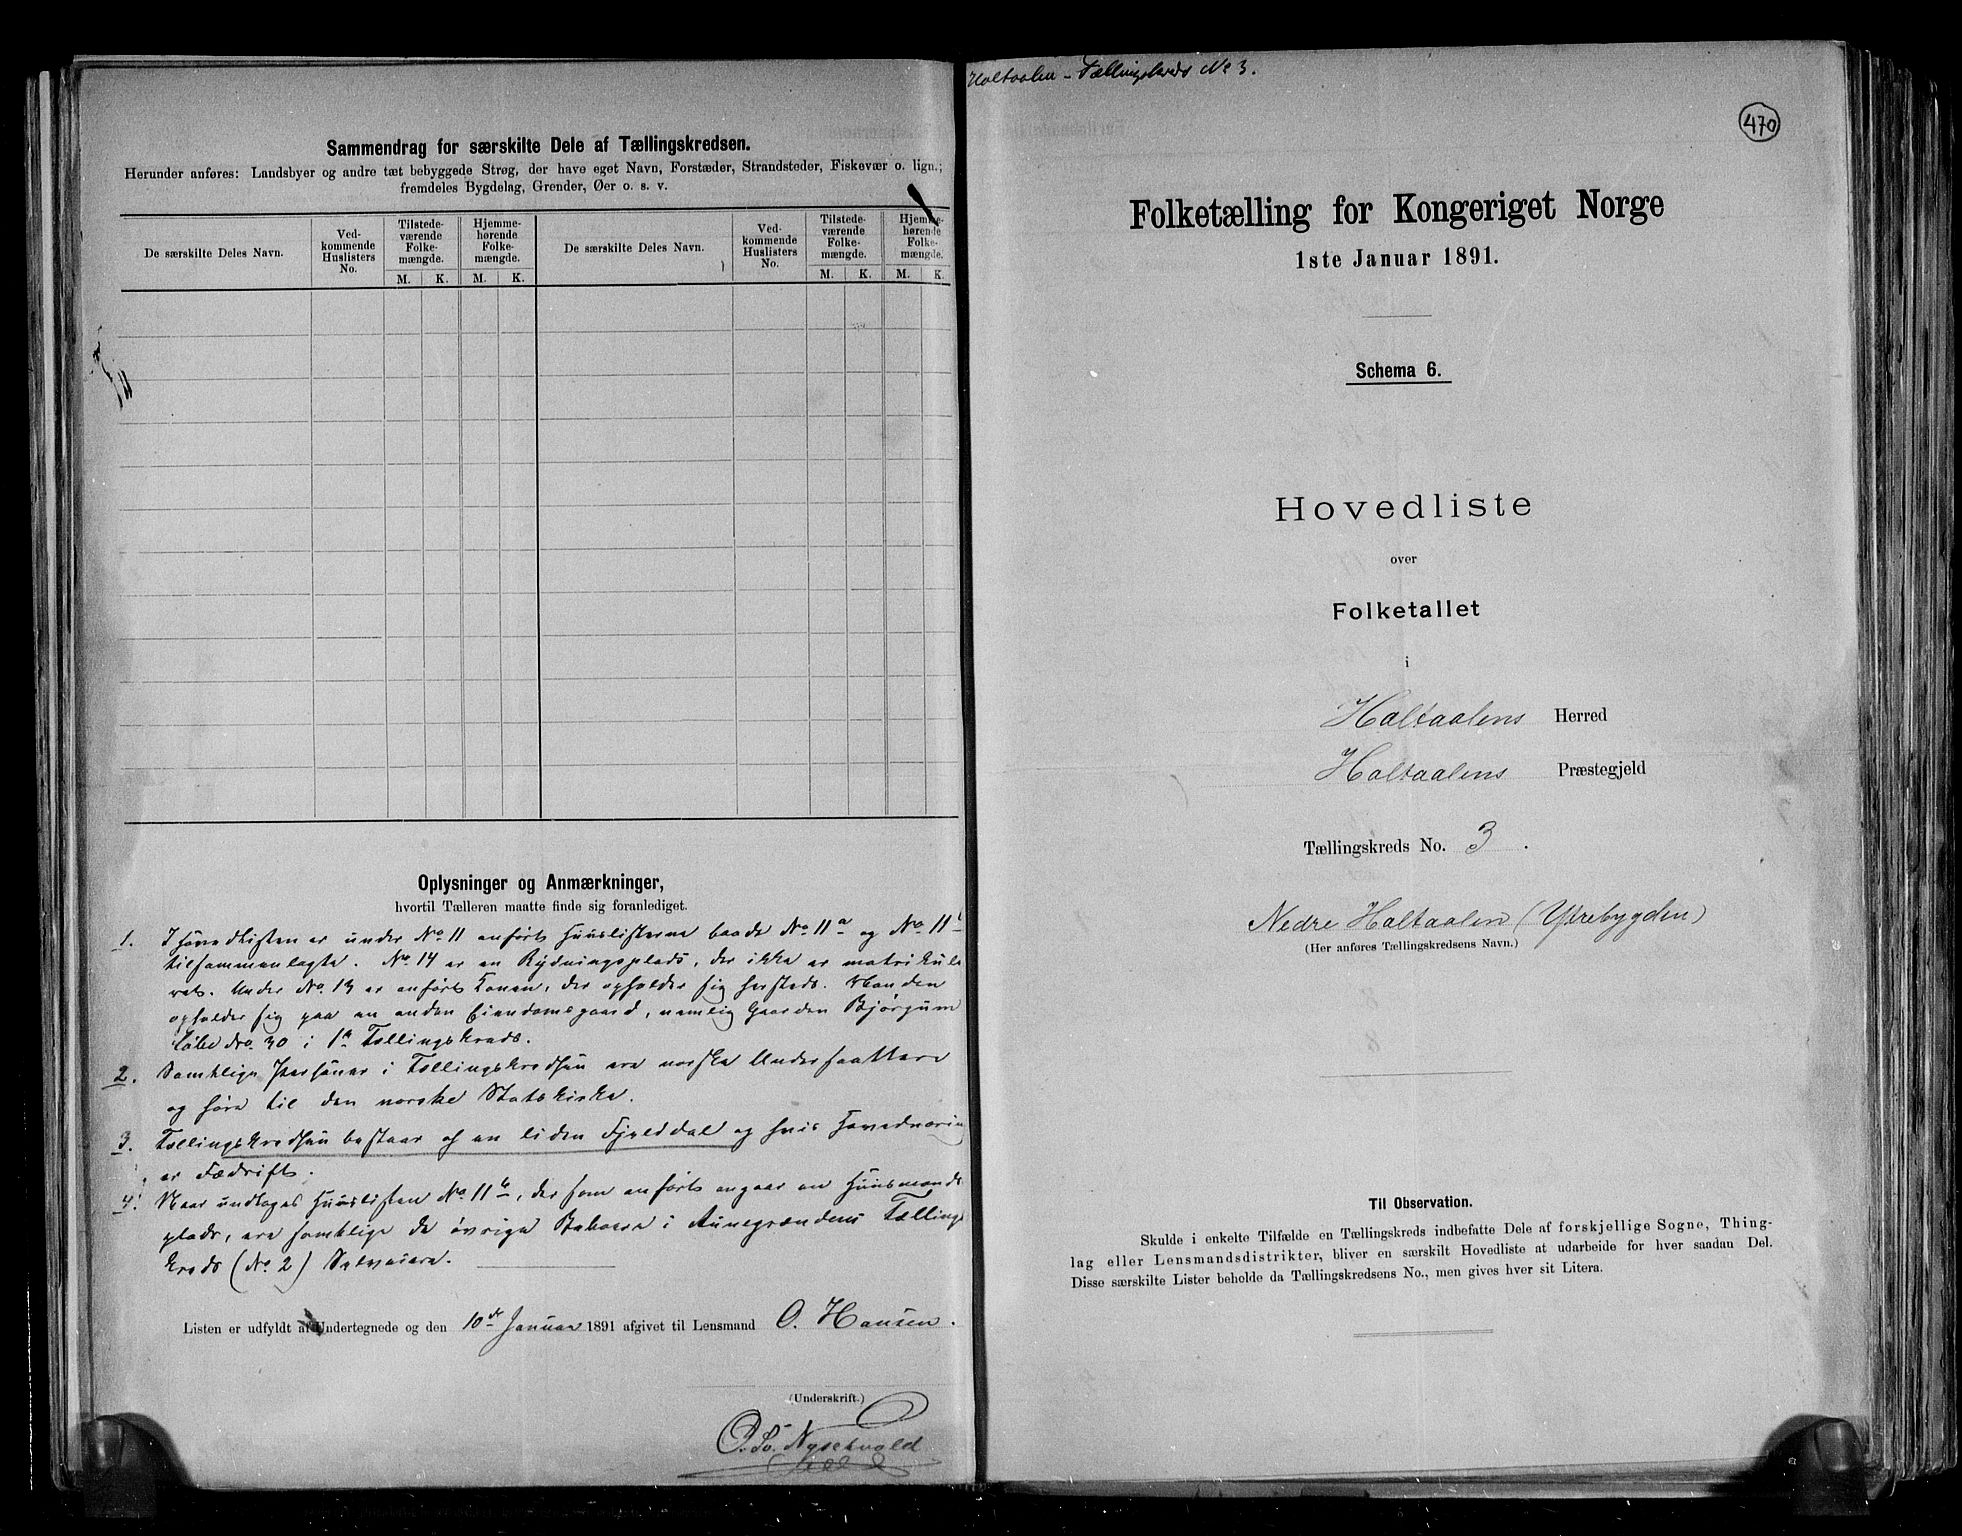 Sammendrag for særskilte Dele af Tællingskredsen.
Herunder anføres: Landsbyer og andre tæt bebyggede Strøg, der have eget Navn, Forstæder, Strandsteder, Fiskevær o. lign.;
fremdeles Bygdelag, Grender, Øer o. s. v.
De særskilte Deles Navn.
Ved-
kommende
Huslisters
No.
Tilstede-
værende
Folke-
mængde.
M. K.
Hjemme-
hørende
Folke-
mængde.
M. K.
De særskilte Deles Navn.
Ved-
kommende
Huslisters
No.
Tilstede-
værende
Folke-
mængde.
M. K.
Hjemme-
hørende
Folke-
mængde.
M. K.
Oplysninger og Anmærkninger,
hvortil Tælleren maatte finde sig foranlediget.
1. I Hovedlisten er under No 11 anførts Huuslisterne baade No 11a og No 11b
tilsammenlagte. No 14 er en Rydningsplads, der ikke er matrikule
rets. Under No 13 er anførts Konen, der opholder sig hersteds. Manden
opholder sig paa en anden Eiendomsgaard, nemlig Gaarden Bjørgum
Løbe No. 30 i 1ste Tællingskreds.
2. Samtlige Personer i Tællingskredsen ere norske Undersaattere
og høre til den norske Statskirke.
3. Tællingskredsen bestaar af en liden Fjelddal og hvis Hovednæring
er Fædrift.
4. Naar undtages Huuslisten No 11b, der som anførts angaar en Huusmands
plads, ere samtlige de øvrige Beboere i Aunegrændens Tællings
kreds (No. 2) Selveiere.
Listen er udfyldt af Undertegnede og den 10de Januar 1891 afgivet til Lensmand O. Hansen.
(Underskrift.)
Haltaalen - Tællingskreds No 3.
470
Folketælling for Kongeriget Norge
1ste Januar 1891.
Schema 6.
Hovedliste
over
Folketallet
i
Haltaalens Herred
Haltaalens Præstegjeld
Tællingskreds No. 3.
Nedre Haltaalen (Ytrebygden)
(Her anføres Tællingskredsens Navn.)
Til Observation.
Skulde i enkelte Tilfælde en Tællingskreds indbefatte Dele af forskjellige Sogne, Thing-
lag eller Lensmandsdistrikter, bliver en særskilt Hovedliste at udarbeide for hver saadan Del.
Disse særskilte Lister beholde da Tællingskredsens No., men gives hver sit Litera.